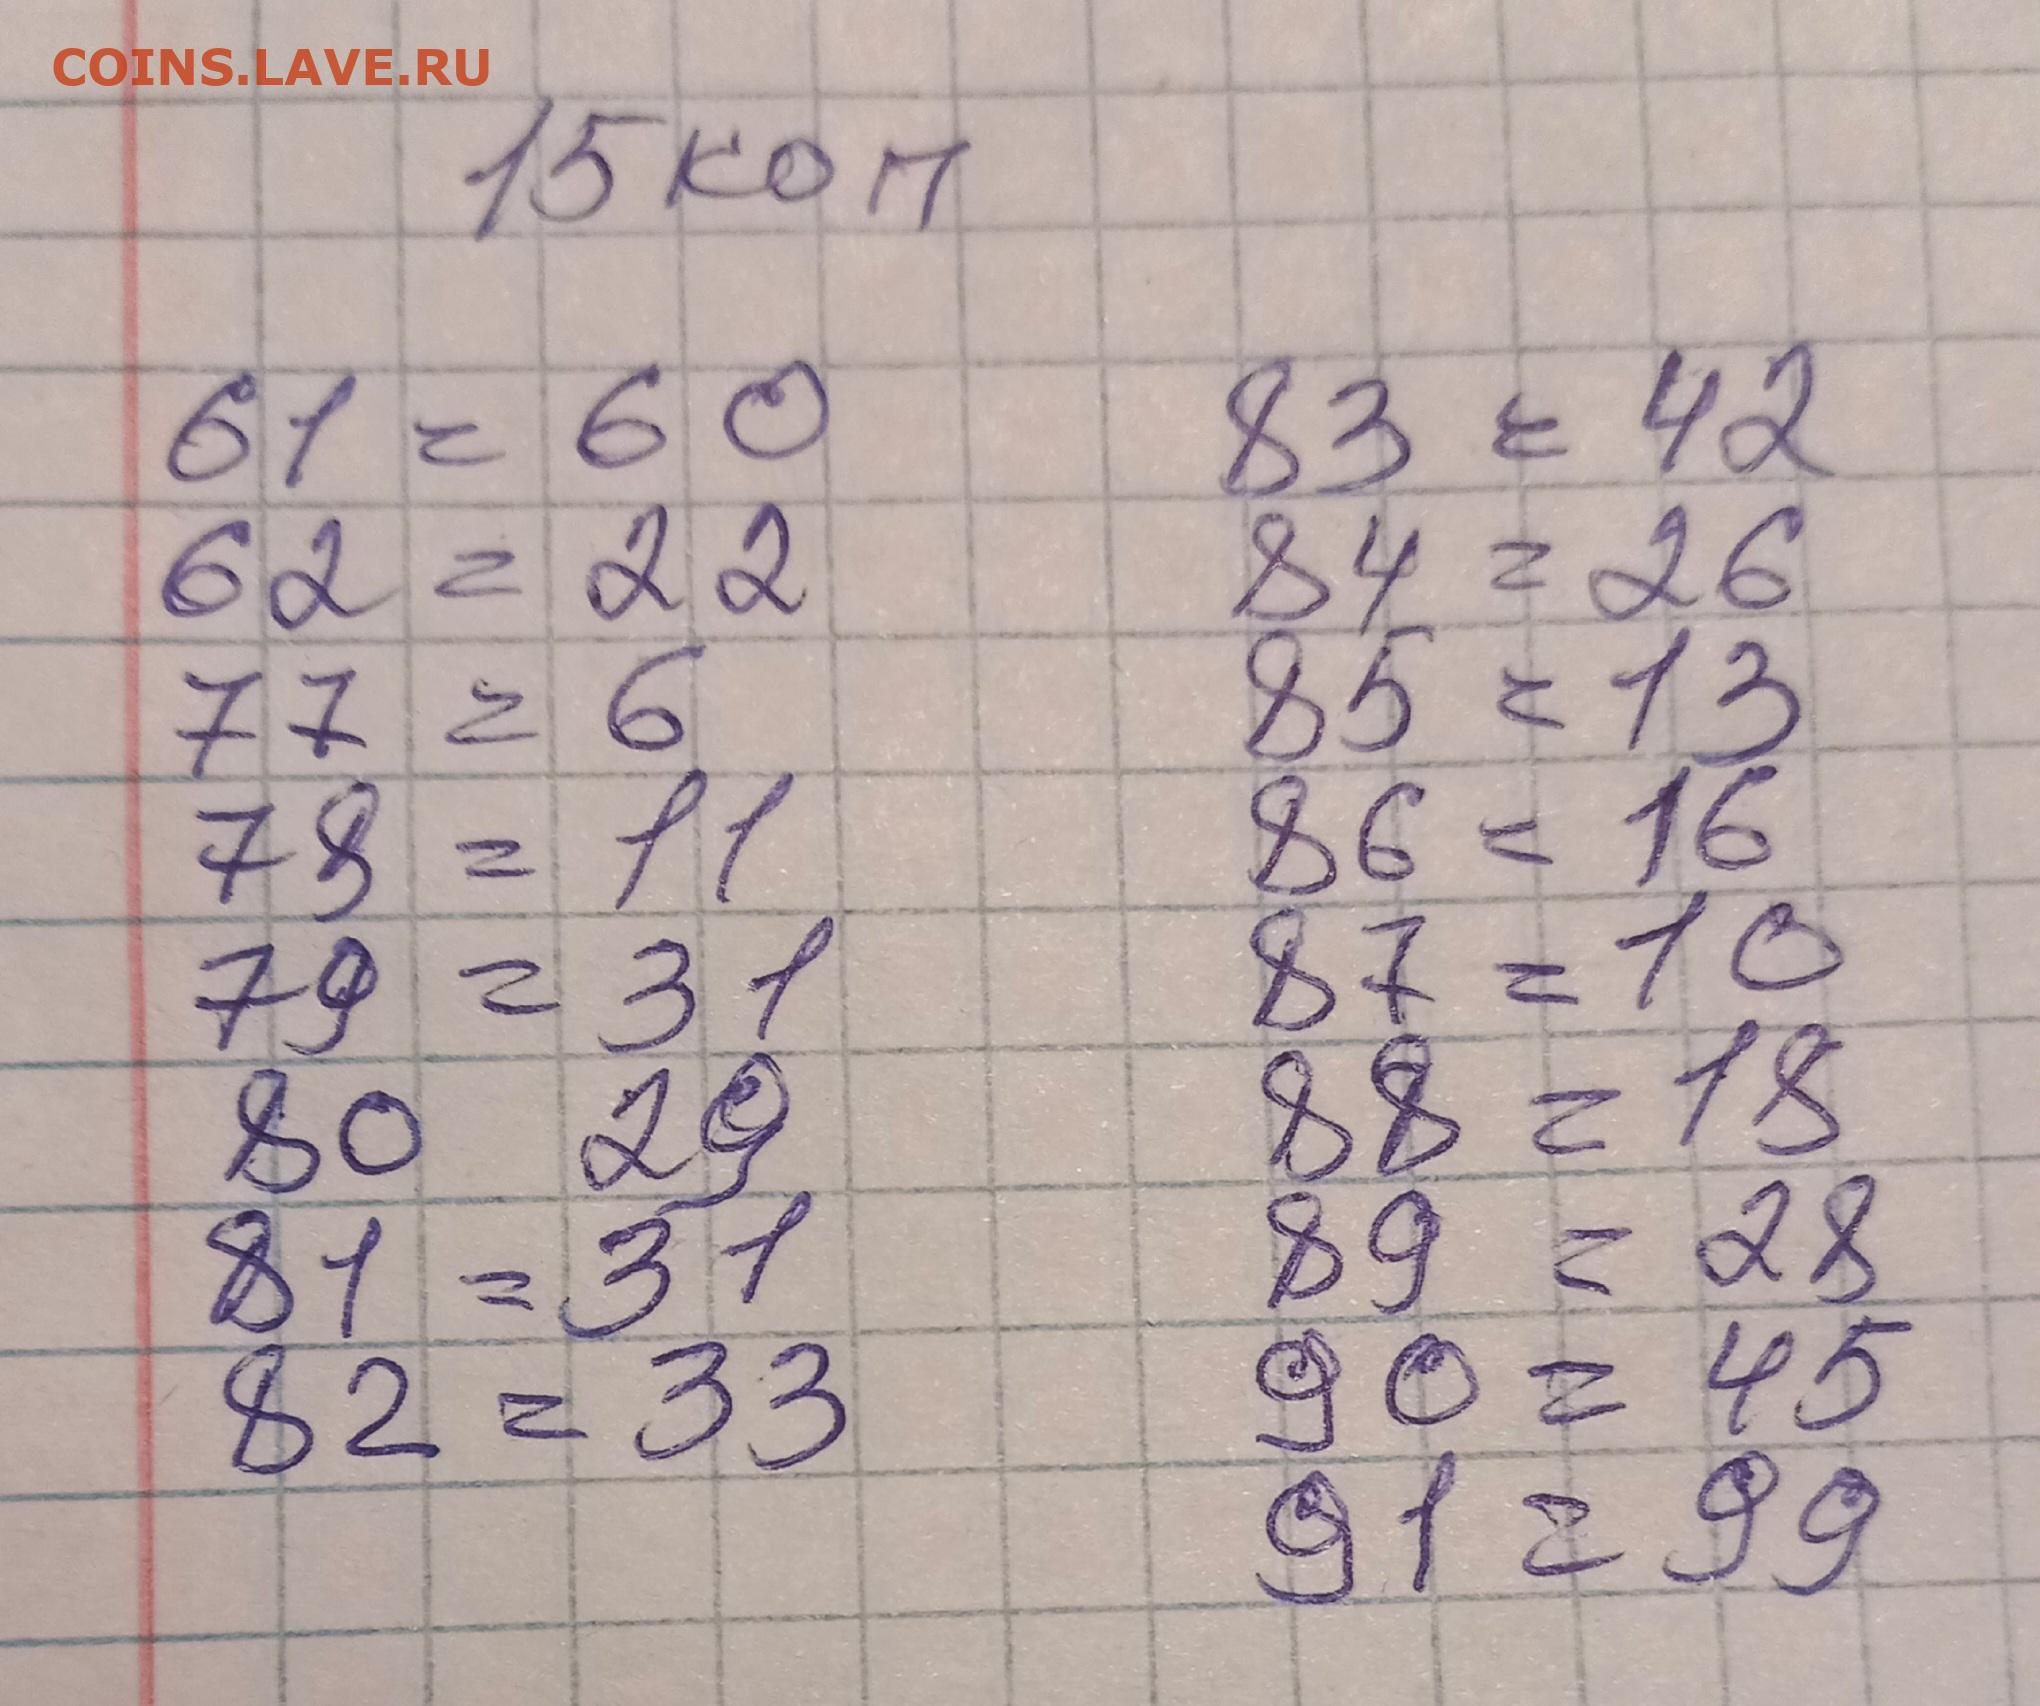 COINS.LAVE.RU
15 коп
61 = 60
62 = 22
77 = 6
78 = 11
79 = 31
80 29
81 = 31
82 = 33
83 = 42
84 = 26
85 = 13
86 = 16
87 = 10
88 = 18
89 = 28
90 = 45
91 = 99